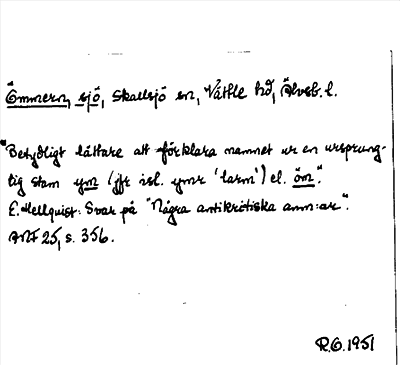 Ömmern, sjö, Skallsjö sn, Vättle hd, Älvsb. l.
"Betydligt lättare att förklara namnet ur en ursprung-
lig stam ym (jfr isl. ymr 'larm') el. öm."
E. Hellquist: Svar på "Några antikritiska anm:ar".
ANF 25, s. 356.
R.O. 1951